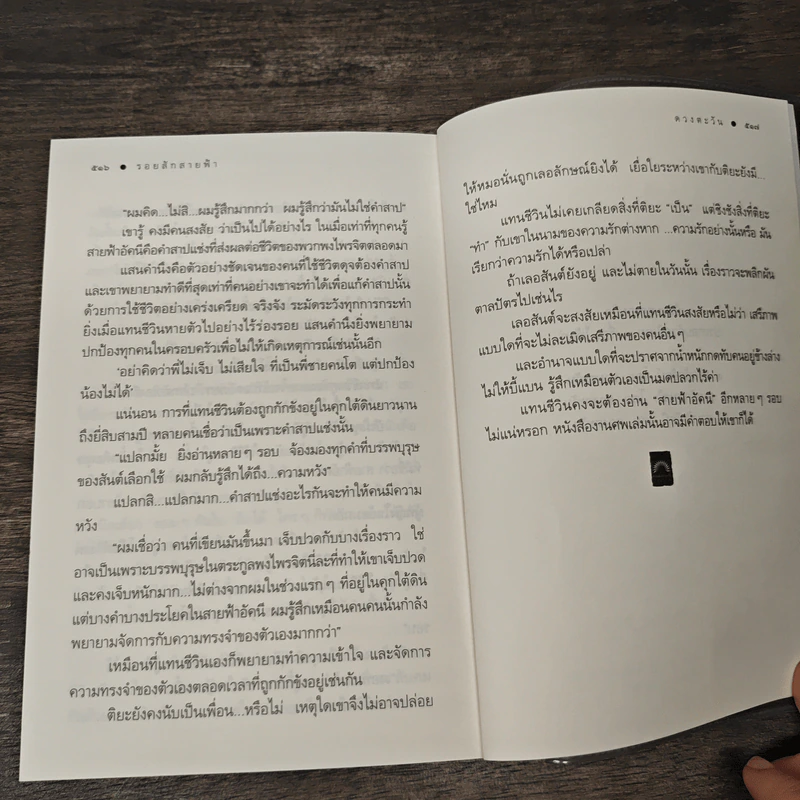 ๕๑๖ ● รอยสักสายฟ้า
"ผมคิด...ไม่สิ...ผมรู้สึกมากกว่า ผมรู้สึกว่ามันไม่ใช่คำสาป"
เขารู้ คงมีคนสงสัย ว่าเป็นไปได้อย่างไร ในเมื่อเท่าที่ทุกคนรู้
สายฟ้าอัคนีคือคำสาปแช่งที่ส่งผลต่อชีวิตของพวกพงไพรจิตตลอดมา
แสนคำนึงคือตัวอย่างชัดเจนของคนที่ใช้ชีวิตดุจต้องคำสาป
และเขาพยายามทำดีที่สุดเท่าที่คนอย่างเขาจะทำได้เพื่อแก้คำสาปนั้น
ด้วยการใช้ชีวิตอย่างเคร่งเครียด จริงจัง ระมัดระวังทุกการกระทำ
ยิ่งเมื่อแทนชีวินหายตัวไปอย่างไร้ร่องรอย แสนคำนึงยิ่งพยายาม
ปกป้องทุกคนในครอบครัวเพื่อไม่ให้เกิดเหตุการณ์เช่นนั้นอีก
'อย่าคิดว่าพี่ไม่เจ็บ ไม่เสียใจ ที่เป็นพี่ชายคนโต แต่ปกป้อง
น้องไม่ได้'
แน่นอน การที่แทนชีวินต้องถูกกักขังอยู่ในคุกใต้ดินยาวนาน
ถึงยี่สิบสามปี หลายคนเชื่อว่าเป็นเพราะคำสาปแช่งนั้น
"แปลกมั้ย ยิ่งอ่านหลายๆ รอบ จ้องมองทุกคำที่บรรพบุรุษ
ของสันต์เลือกใช้ ผมกลับรู้สึกได้ถึง...ความหวัง"
แปลกสิ...แปลกมาก...คำสาปแช่งอะไรกันจะทำให้คนมีความ
หวัง
"ผมเชื่อว่า คนที่เขียนมันขึ้นมา เจ็บปวดกับบางเรื่องราว ใช่
อาจเป็นเพราะบรรพบุรุษในตระกูลพงไพรจิตนี่ละที่ทำให้เขาเจ็บปวด
และคงเจ็บหนักมาก...ไม่ต่างจากผมในช่วงแรกๆ ที่อยู่ในคุกใต้ดิน
แต่บางคำบางประโยคในสายฟ้าอัคนี ผมรู้สึกเหมือนคนคนนั้นกำลัง
พยายามจัดการกับความทรงจำของตัวเองมากกว่า"
เหมือนที่แทนชีวินเองก็พยายามทำความเข้าใจ และจัดการ
ความทรงจำของตัวเองตลอดเวลาที่ถูกกักขังอยู่เช่นกัน
ติยะยังคงนับเป็นเพื่อน...หรือไม่ เหตุใดเขาจึงไม่อาจปล่อย
ดวงตะวัน ● ๕๑๗
ให้หมอนั่นถูกเลอลักษณ์ยิงได้ เยื่อใยระหว่างเขากับติยะยังมี...
ใช่ไหม
แทนชีวินไม่เคยเกลียดสิ่งที่ติยะ "เป็น" แต่ชิงชังสิ่งที่ติยะ
"ทำ" กับเขาในนามของความรักต่างหาก ...ความรักอย่างนั้นหรือ มัน
เรียกว่าความรักได้หรือเปล่า
ถ้าเลอสันต์ยังอยู่ และไม่ตายในวันนั้น เรื่องราวจะพลิกผัน
ตาลปัตรไปเช่นไร
เลอสันต์จะสงสัยเหมือนที่แทนชีวินสงสัยหรือไม่ว่า เสรีภาพ
แบบใดที่จะไม่ละเมิดเสรีภาพของคนอื่นๆ
และอำนาจแบบใดที่จะปราศจากน้ำหนักกดทับคนอยู่ข้างล่าง
ไม่ให้บี้แบน รู้สึกเหมือนตัวเองเป็นมดปลวกไร้ค่า
แทนชีวินคงจะต้องอ่าน "สายฟ้าอัคนี" อีกหลายๆ รอบ
ไม่แน่หรอก หนังสืองานศพเล่มนั้นอาจมีคำตอบให้เขาก็ได้